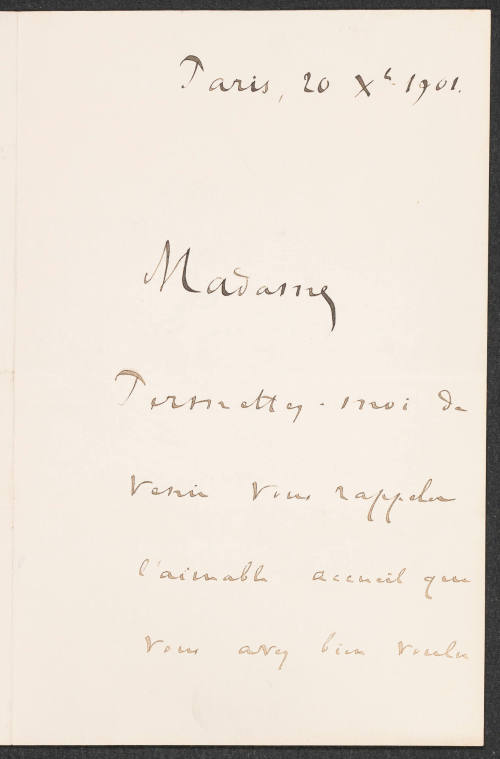 Paris, 20 Xb. 1901.
Madame
Permettez-moi de
venir vous rappeler
l'aimable accueil que
vous avez bien voulu